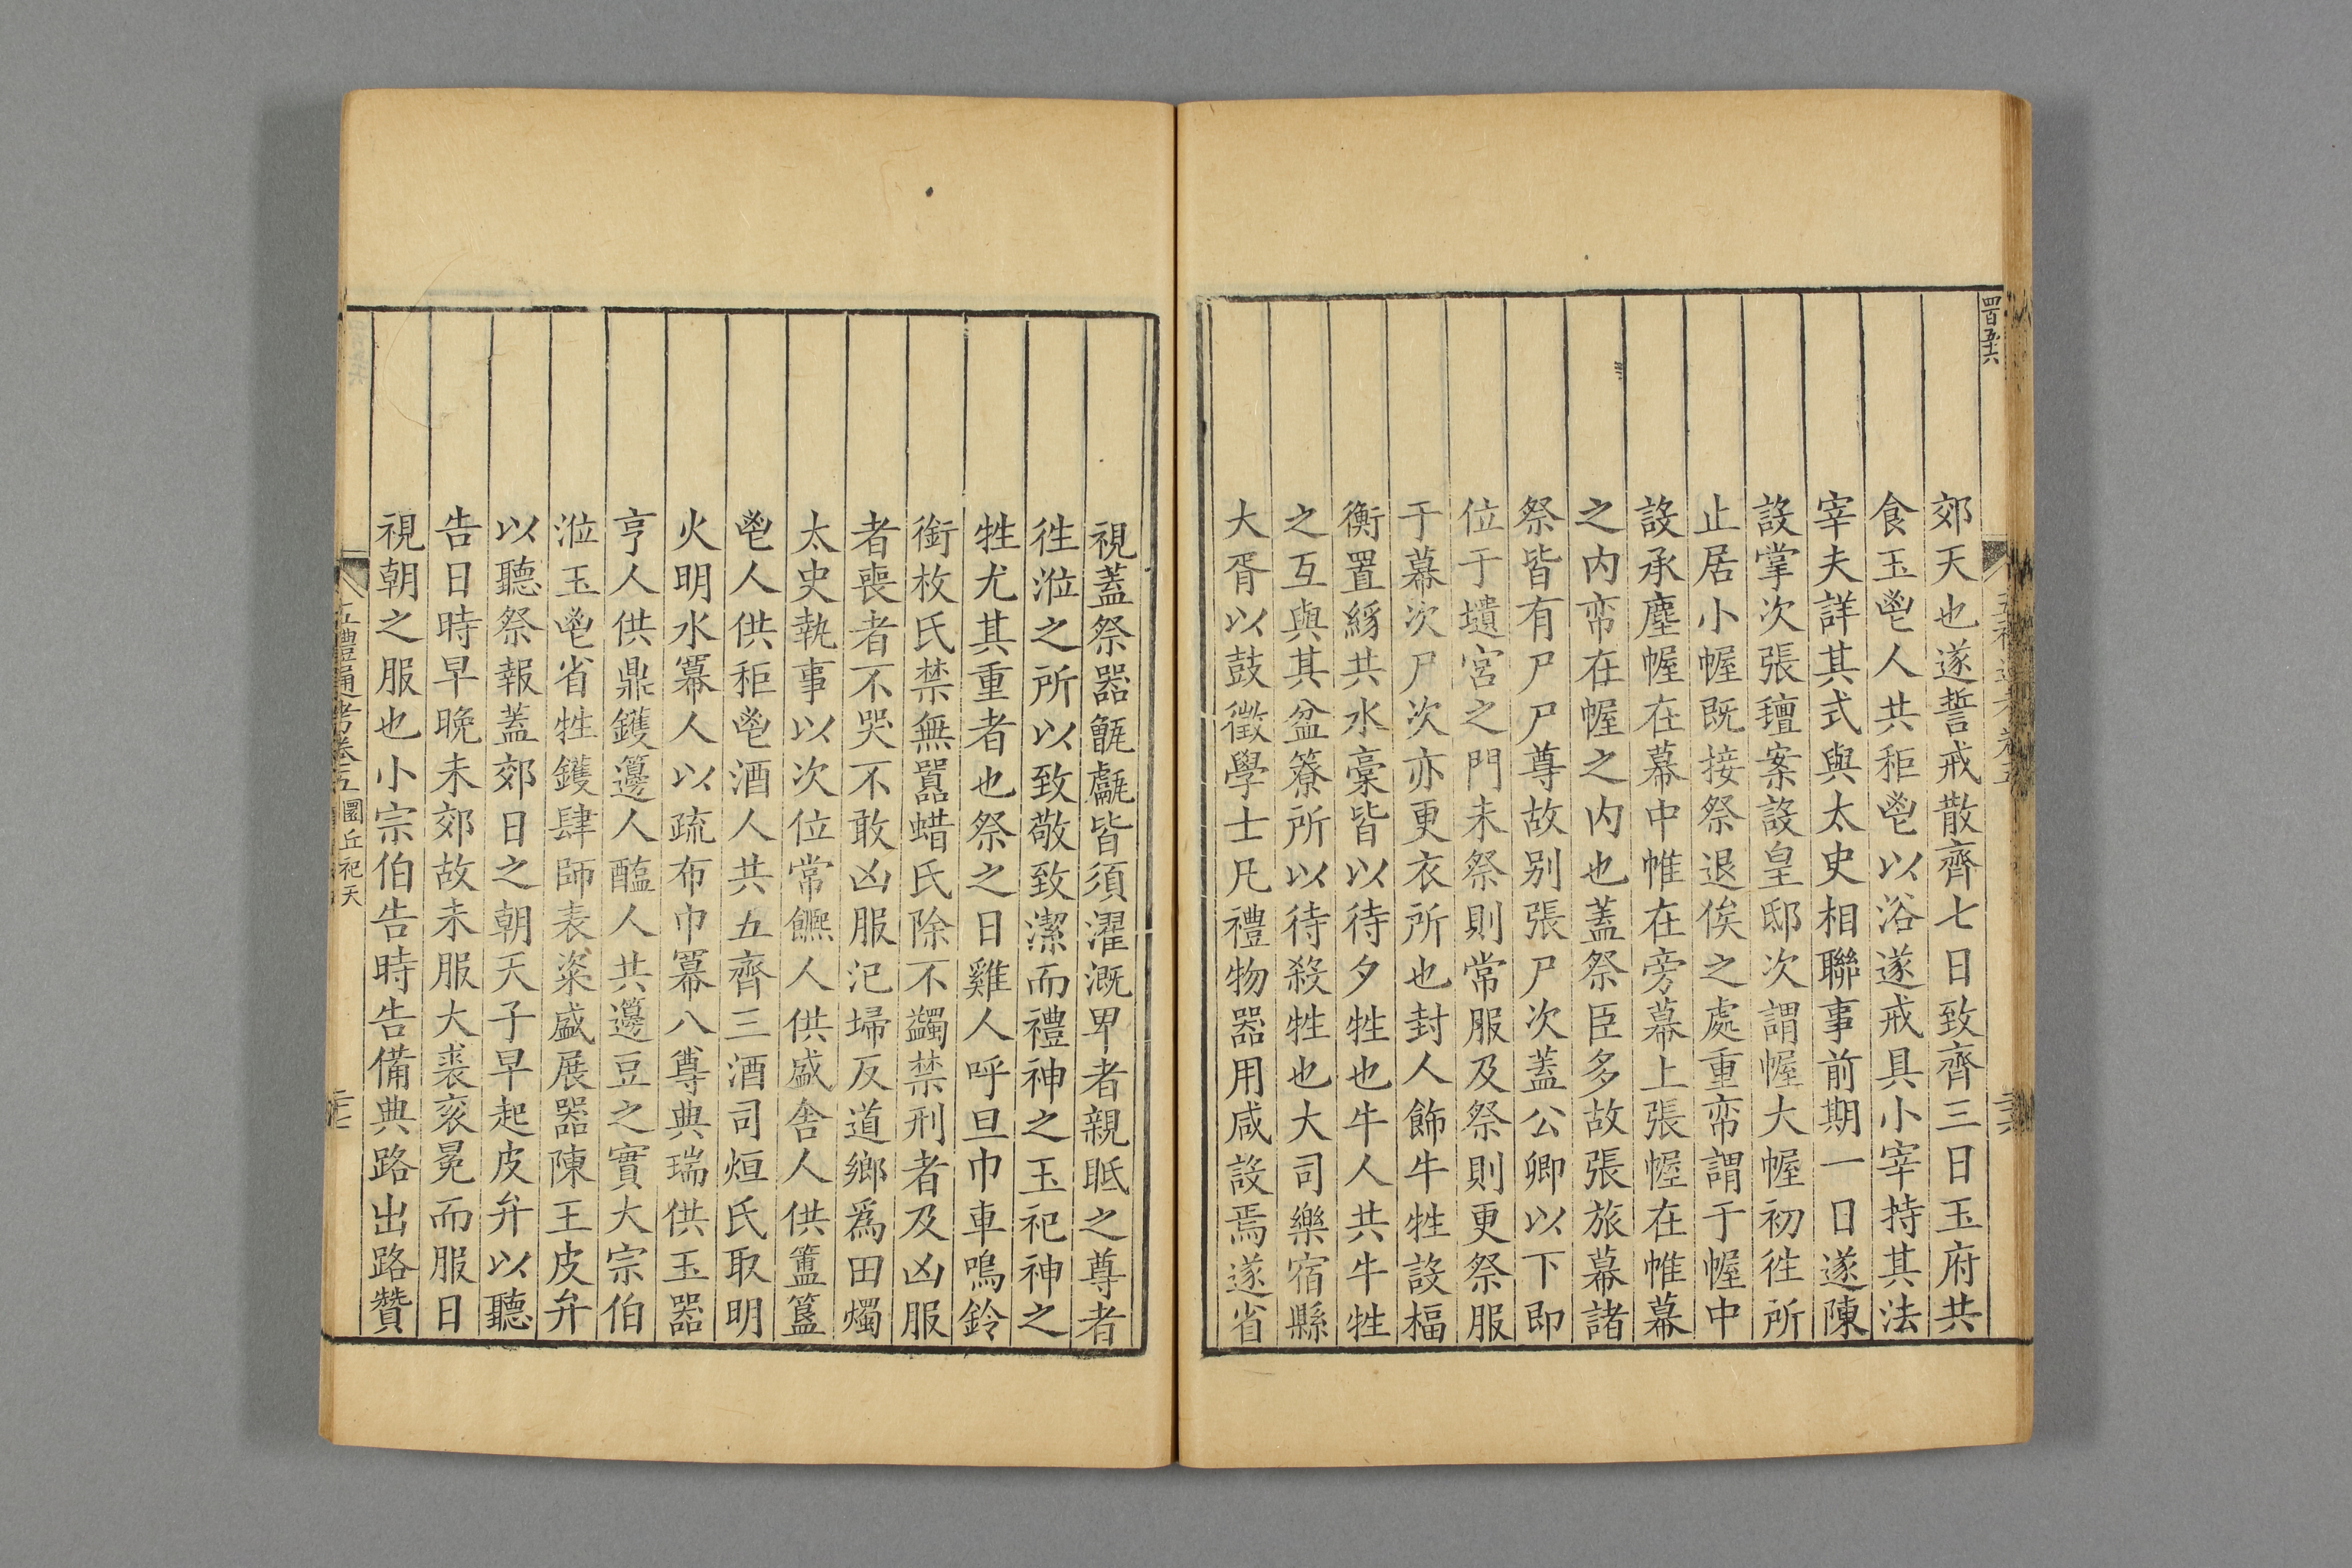 四百五十六
郊天也遂誓戒散齊七日致齊三日玉府共
食玉鬯人共秬鬯以浴遂戒具小宰持其法
宰夫詳其式與太史相聯事前期一日遂陳
設掌次張氊案設皇邸次謂幄大幄初徃所
止居小幄既接祭退俟之處重帟謂于幄中
設承塵幄在幕中帷在旁幕上張幄在帷幕
之内帟在幄之内也蓋祭臣多故張旅幕諸
祭皆有尸尸尊故别張尸次蓋公卿以下即
位于壝宮之門未祭則常服及祭則更祭服
于幕次尸次亦更衣所也封人飾牛牲設楅
衡置絼共水稾皆以待夕牲也牛人共牛牲
之互與其盆簝所以待殺牲也大司樂宿縣
大胥以鼓徵學士凡禮物器用咸設焉遂省
視蓋祭器甑甗皆須濯溉卑者親眡之尊者
徃涖之所以致敬致潔而禮神之玉祀神之
牲尤其重者也祭之日雞人呼旦巾車鳴鈴
銜枚氏禁無嚻蜡氏除不蠲禁刑者及凶服
者喪者不哭不敢凶服汜埽反道鄉爲田燭
太史執事以次位常饎人供盛舍人供簠簋
鬯人供秬鬯酒人共五齊三酒司烜氏取明
火明水冪人以疏布巾冪八尊典瑞供玉器
亨人供鼎鑊籩人醢人共籩豆之實大宗伯
涖玉鬯省牲鑊肆師表粢盛展器陳王皮弁
以聽祭報蓋郊日之朝天子早起皮弁以聽
告日時早晚未郊故未服大裘衮冕而服日
視朝之服也小宗伯告時告備典路出路贊
五禮通考卷五 圜丘祀天